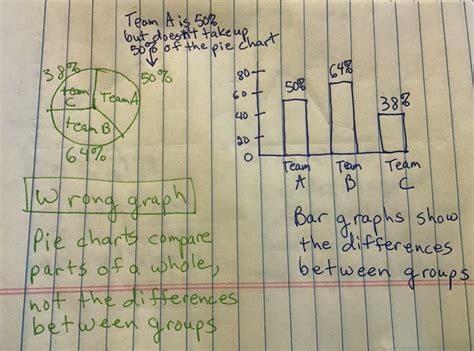 Team A is 50%
but doesn't take up
50% of the pie chart
38%
50%
Team C
Team A
Team B
64%
Wrong graph
Pie charts compare
parts of a whole,
not the differences
between groups
80
60
40
20
0
50%
64%
38%
Team A
Team B
Team C
Bar graphs show
the differences
between groups